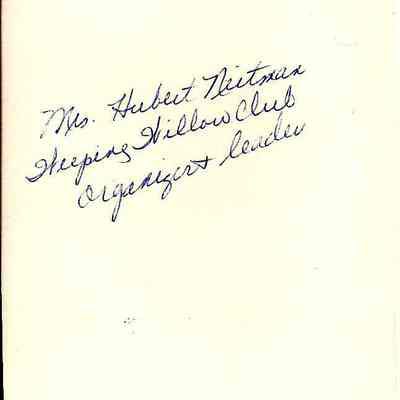 Mrs. Hubert Nietman
Weeping Willow Club
Organizer & leader